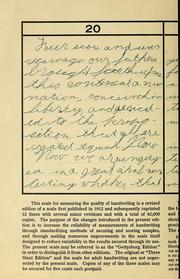 20
Four score and seven
years ago our fathers
brought forth upon
this continent a new
nation, conceived in
liberty and dedicated
to the propo-
sition that all are
created equal. Now
now we are engaged
in a great
testing whether that
This scale for measuring the quality of handwriting is a revised
edition of a scale first published in 1912 and subsequently reprinted
12 times with several minor revisions and with a total of 62,000
copies. The purpose of the changes introduced in the present edi-
tion is to increase the reliability of measurements of handwriting
through standardizing methods of securing and scoring samples,
and through making numerous improvements in the scale itself
designed to reduce variability in the results secured through its use.
The present scale may be referred to as the "Gettysburg Edition"
in order to distinguish it from other editions. The original or "Three
Slant Edition" and the scale for adult handwriting are not super-
seded by the present scale. Copies of any of the three scales may
be secured for five cents each postpaid.